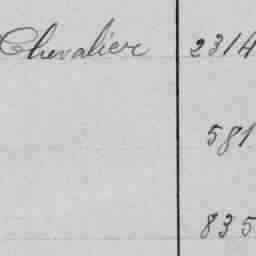 Chevalier 2314
581
835